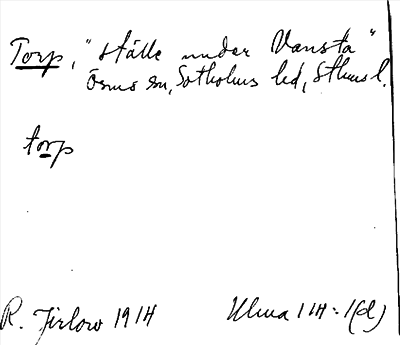 Torp, "ställe under Vansta"
Ösmo sn, Sotholms hd, Sthms l.
torp
R. Jirlow 1914 Ulma 111:1(d)